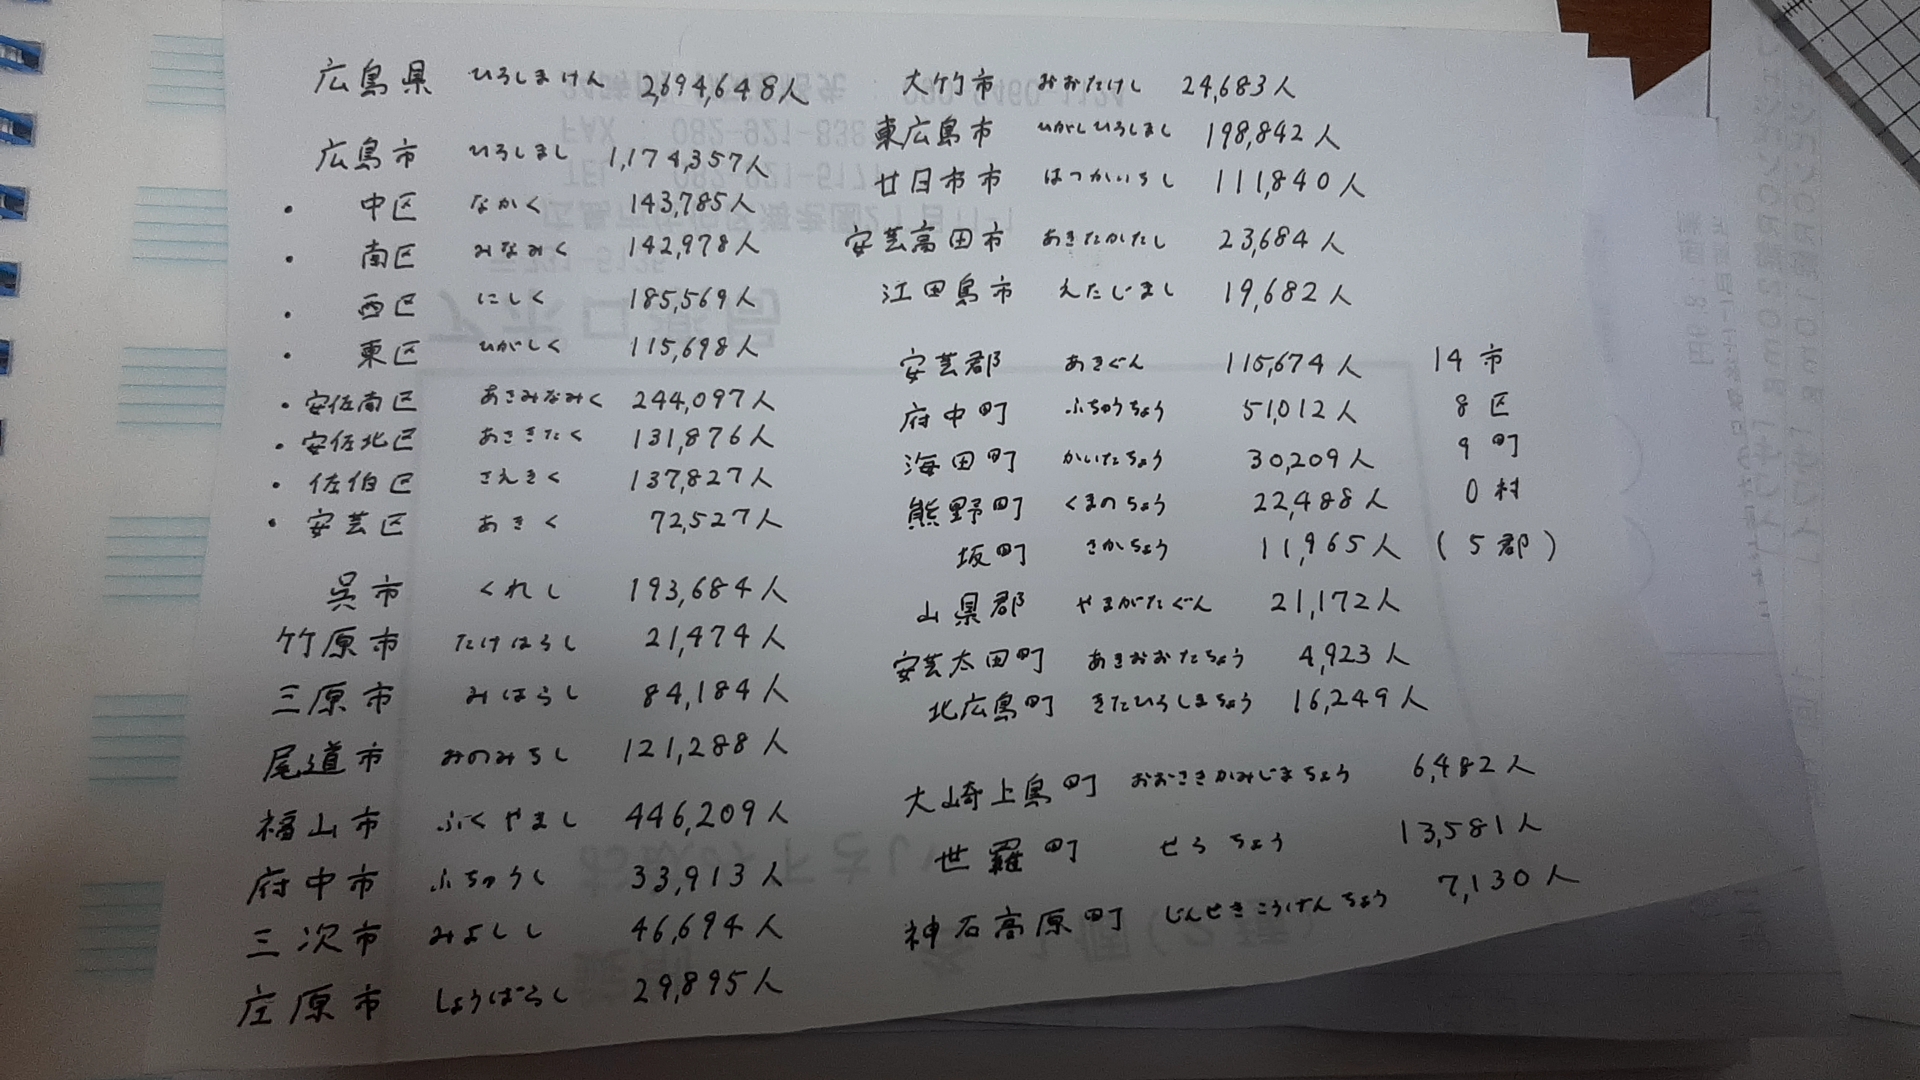 広島県 ひろしまけん 2,694,648人
広島市 ひろしまし 1,174,357人
・ 中区 なかく 143,785人
・ 南区 みなみく 142,978人
・ 西区 にしく 185,569人
・ 東区 ひがしく 115,698人
・安佐南区 あさみなみく 244,097人
・安佐北区 あさきたく 131,876人
・佐伯区 さえきく 137,827人
・安芸区 あきく 72,527人
呉市 くれし 193,684人
竹原市 たけはらし 21,474人
三原市 みはらし 84,184人
尾道市 おのみちし 121,288人
福山市 ふくやまし 446,209人
府中市 ふちゅうし 33,913人
三次市 みよしし 46,694人
庄原市 しょうばらし 29,895人
大竹市 おおたけし 24,683人
東広島市 ひがしひろしまし 198,842人
廿日市市 はつかいちし 111,840人
安芸高田市 あきたかたし 23,684人
江田島市 えたじまし 19,682人
安芸郡 あきぐん 115,674人
府中町 ふちゅうちょう 51,012人
海田町 かいたちょう 30,209人
熊野町 くまのちょう 22,488人
坂町 さかちょう 11,965人
山県郡 やまがたぐん 21,172人
安芸太田町 あきおおたちょう 4,923人
北広島町 きたひろしまちょう 16,249人
大崎上島町 おおさきかみじまちょう 6,482人
世羅町 せらちょう 13,581人
神石高原町 じんせきこうげんちょう 7,130人
14市
8区
9町
0村
(5郡)